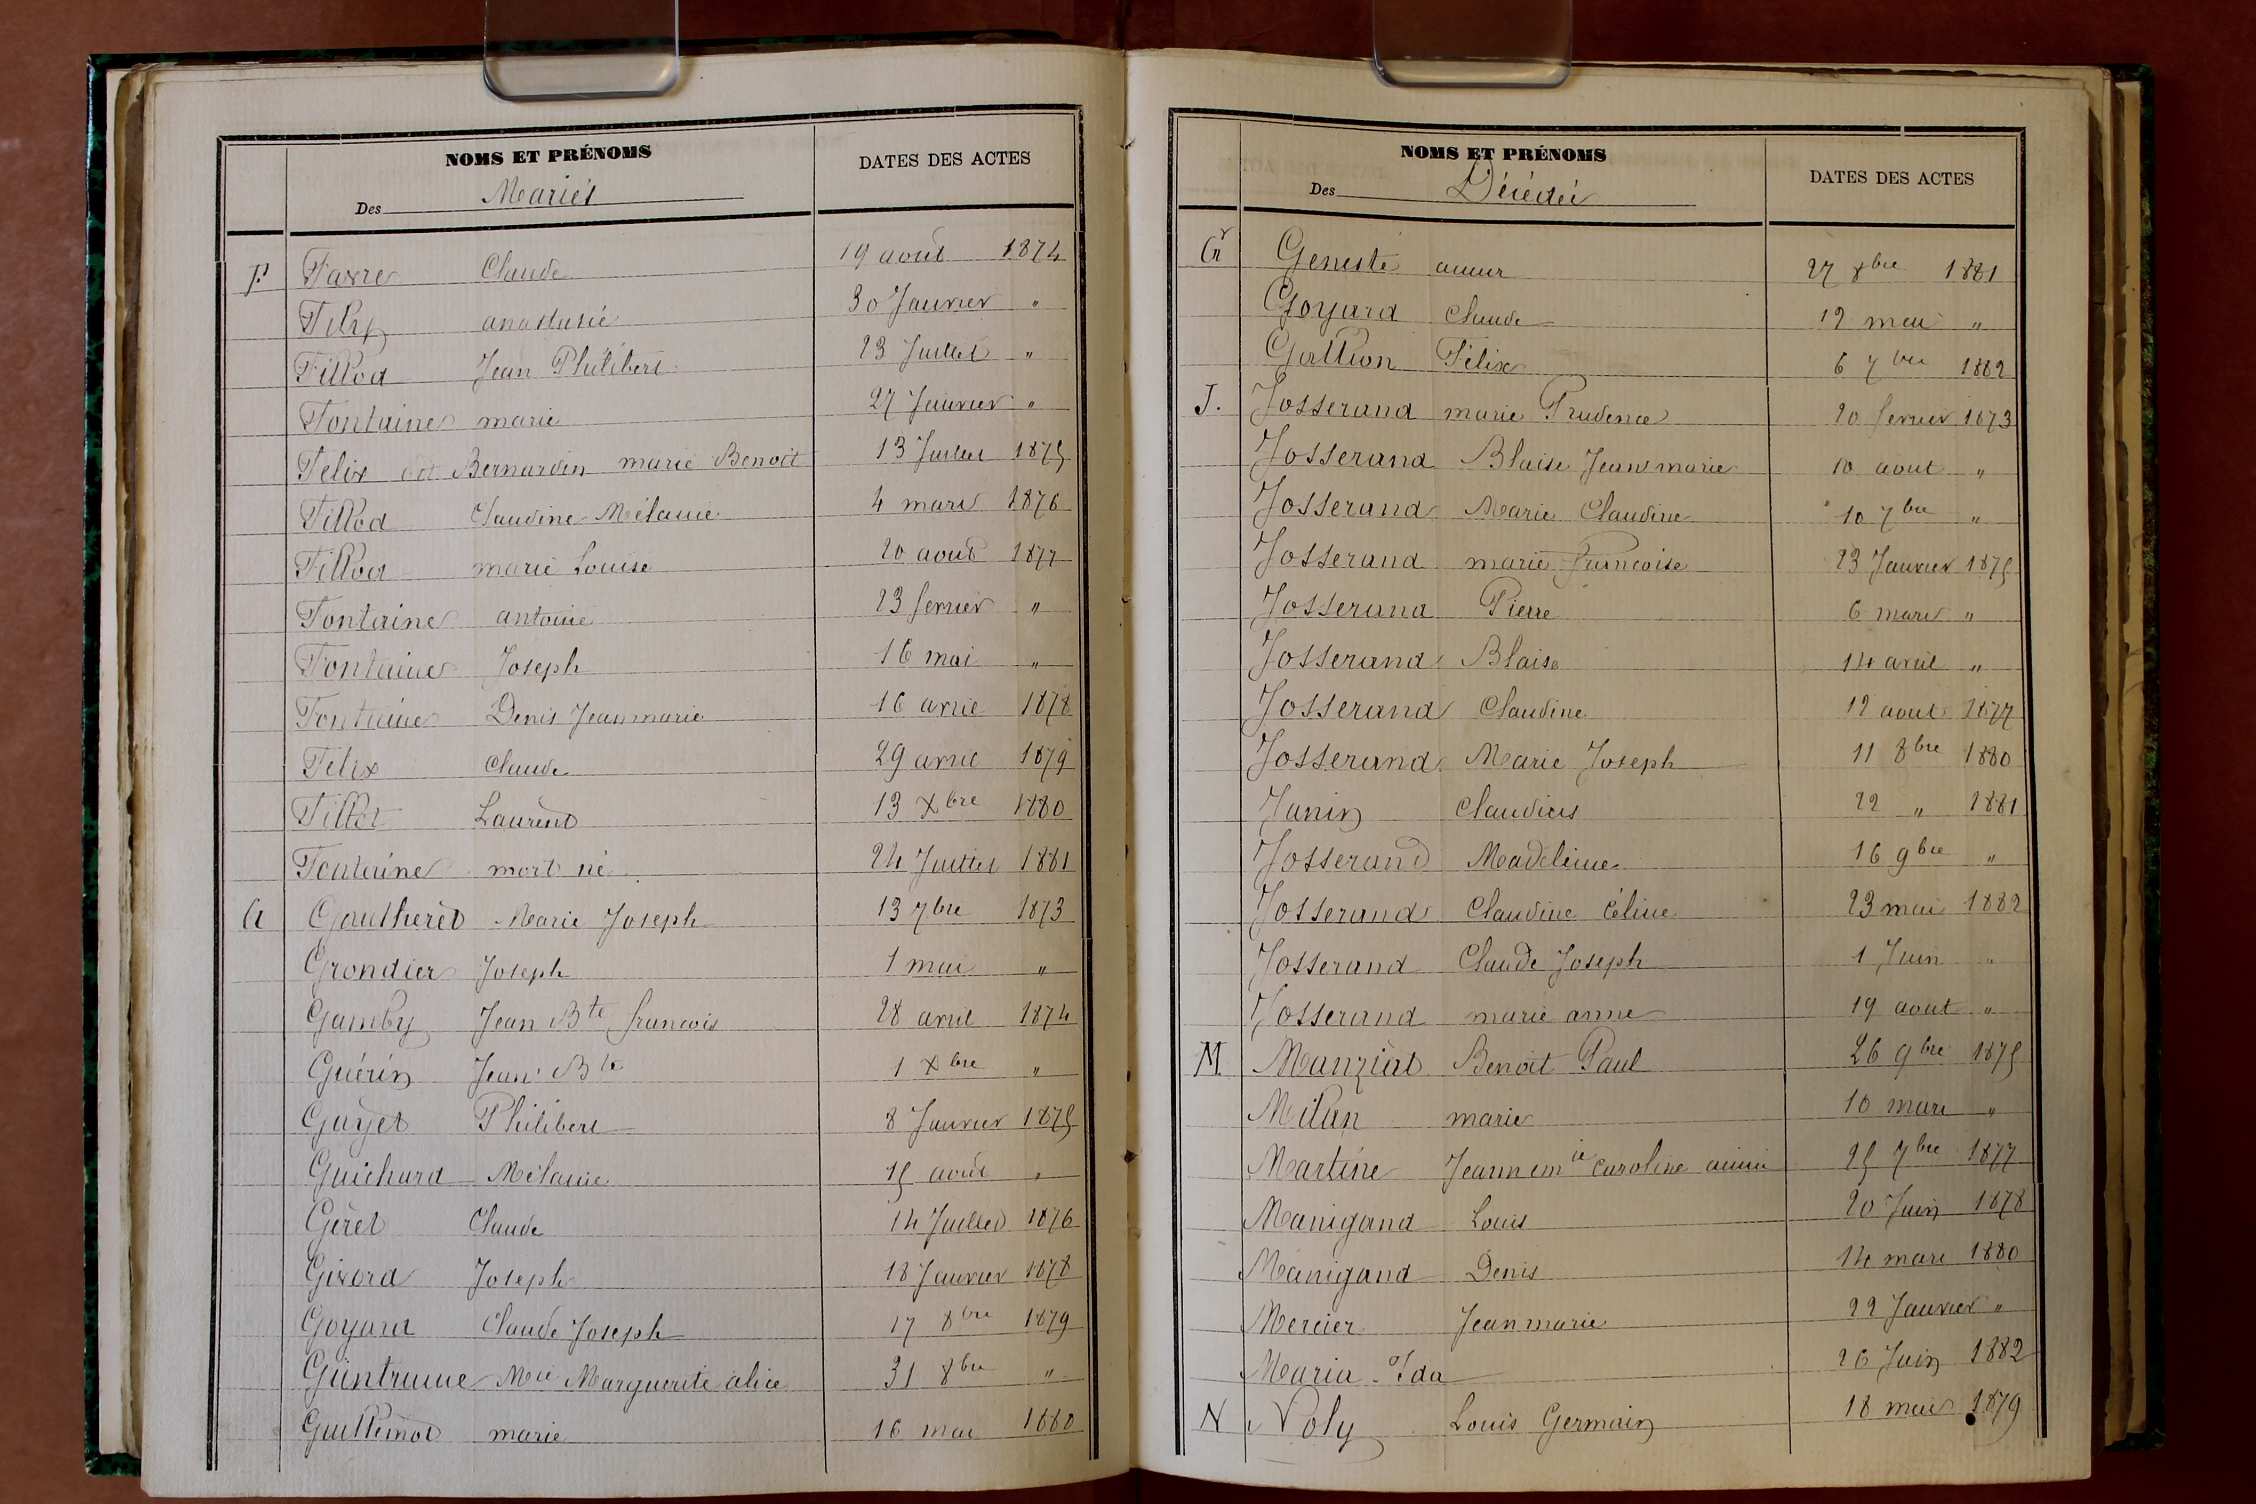 NOMS ET PRÉNOMS
DATES DES ACTES
Des Mariés
F. Favre Claude 19 août 1874
Félix anastasie 30 Janvier "
Fillod Jean Philibert 23 Juillet "
Fontaine marie 27 Janvier "
Félix dit Bernardin marie Benoit 13 Juillet 1875
Fillod Claudine Mélanie 4 mars 1876
Fillod marie Louise 20 août 1877
Fontaine antoine 23 fevrier "
Fontaine Joseph 16 mai "
Fontaine Denis Jean marie 16 avril 1878
Félix Claude 29 avril 1879
Fillot Laurent 13 Xbre 1880
Fontaine mort né 24 Juillet 1881
G Gautheret Marie Joseph 13 7bre 1873
Grondier Joseph 1 mai "
Gamby Jean Bte francois 28 avril 1874
Guérin Jean Bte 1 Xbre "
Guyet Philibert 8 Janvier 1875
Guichard Mélanie 15 août "
Géret Claude 14 Juillet 1876
Givord Joseph 18 Janvier 1878
Goyard Claude Joseph 17 8bre 1879
Mie Marguerite alice 31 8bre "
Guillemot marie 16 mai 1880
NOMS ET PRÉNOMS
DATES DES ACTES
Des Décédés
G Geneste 27 8bre 1881
Goyard Claude 12 mai "
Gallion Félix 6 7bre 1882
J. Josserand marie Prudence 20 fevrier 1873
Josserand Blaise Jean marie 10 aout "
Josserand Marie Claudine 10 7bre "
Josserand marie francoise 23 Janvier 1875
Josserand Pierre 6 mars "
Josserand Blaise 14 avril "
Josserand Claudine 12 aout 1877
Josserand Marie Joseph 11 8bre 1880
Janin Claudius 22 " 1881
Josserand Madeleine 16 9bre "
Josserand Claudine Céline 23 mai 1882
Josserand Claude Joseph 1 Juin "
Josserand marie anne 19 aout "
M. Manziat Benoit Paul 26 9bre 1875
Milan marie 10 mars "
Martine Jeanne mie Caroline 25 7bre 1877
Manigand Louis 20 Juin 1878
Manigand Denis 14 mars 1880
Mercier Jean marie 22 Janvier "
Maria Ida 26 Juin 1882
N Noly Louis Germain 18 mai 1879